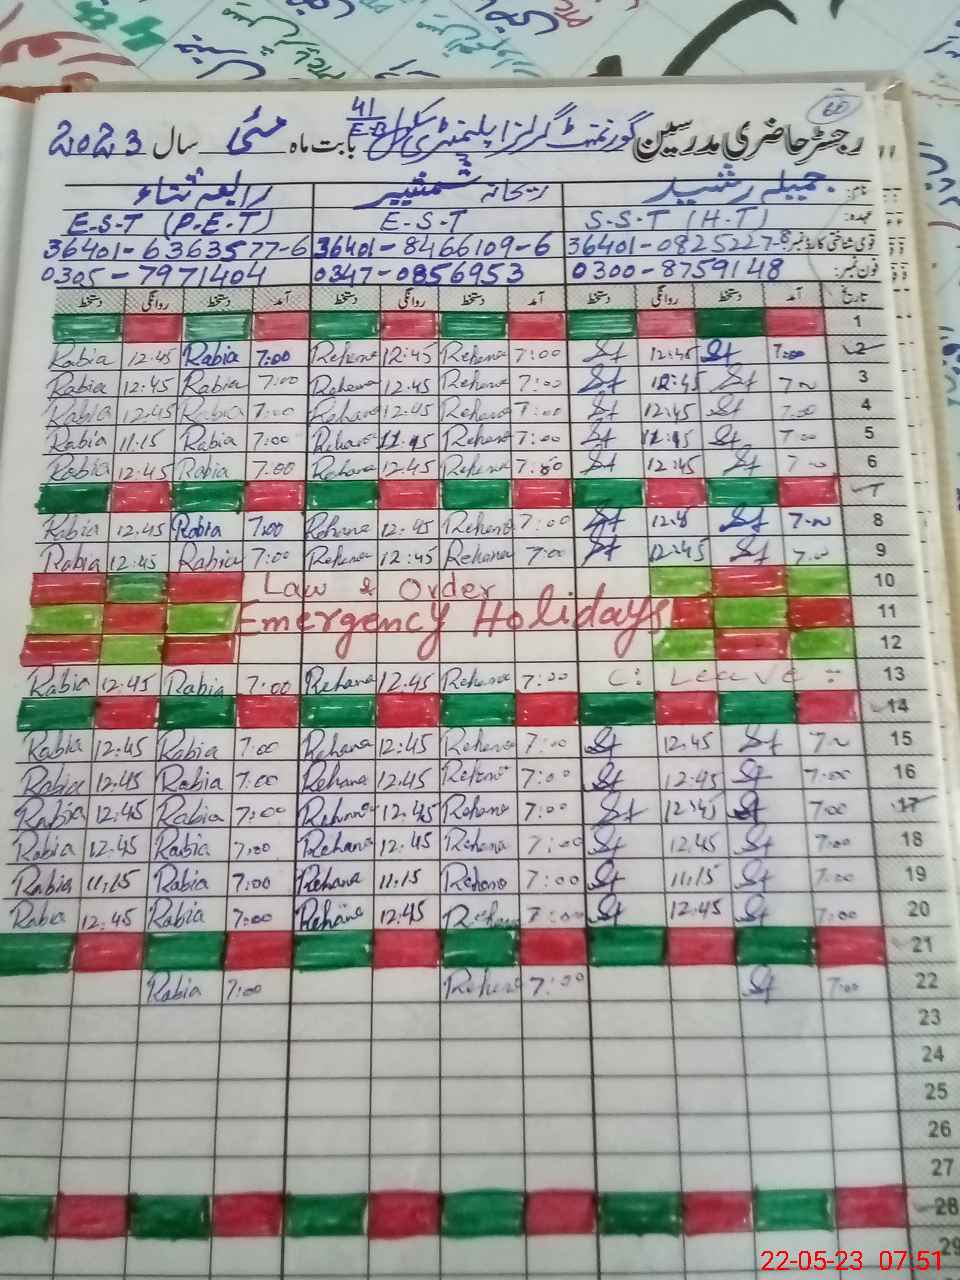 66
رجسٹر حاضری مدرسین گورنمنٹ گرلز ایلیمنٹری سکول 41/E.B بابت ماہ مئی سال 2023
نام: جمیلہ رشید ریحانہ شمشیر رابعہ ثناء
عہدہ: S.S.T (H.T) E-S-T E-S-T (P.E.T)
قومی شناختی کارڈ نمبر: 36401-0825227-8 36401-8466109-6 36401-6363577-6
فون نمبر: 0300-8759148 0347-0856953 0305-7971404
تاریخ آمد دستخط روانگی دستخط آمد دستخط روانگی دستخط آمد دستخط روانگی دستخط
1
Rabia 12:45 Rabia 7:00 Rehana 12:45 Rehana 7:00 12:45 7:00 2
Rabia 12:45 Rabia 7:00 Rehana 12:45 Rehana 7:00 12:45 7:00 3
Rabia 12:45 Rabia 7:00 Rehana 12:45 Rehana 7:00 12:45 7:00 4
Rabia 11.15 Rabia 7:00 Rehana 11.15 Rehana 7:00 11.15 7:00 5
Rabia 12.45 Rabia 7:00 Rehana 12.45 Rehana 7:00 12:45 7:00 6
7
Rabia 12.45 Rabia 7:00 Rehana 12:45 Rehana 7:00 7:00 8
Rabia 12:45 Rabia 7:00 Rehana 12:45 Rehana 7:00 12:45 7:00 9
Law & Order 10
Emergency Holidays 11
12
Rabia 12.45 Rabia 7:00 Rehana 12.45 Rehana 7:00 C: Leave 13
14
Rabia 12:45 Rabia 7:00 Rehana 12:45 Rehana 7:00 12.45 7:00 15
Rabia 12:45 Rabia 7:00 Rehana 12.45 Rehana 7:00 12:45 7:00 16
Rabia 12:45 Rabia 7:00 Rehana 12.45 Rehana 7:00 12:45 7:00 17
Rabia 12.45 Rabia 7:00 Rehana 12:45 Rehana 7:00 12.45 7:00 18
Rabia 11.15 Rabia 7:00 Rehana 11.15 Rehana 7:00 11.15 7:00 19
Rabia 12.45 Rabia 7:00 Rehana 12.45 Rehana 7:00 12.45 7:00 20
21
Rabia 7:00 Rehana 7:00 7:00 22
23
24
25
26
27
28
29
22-05-23 07:51